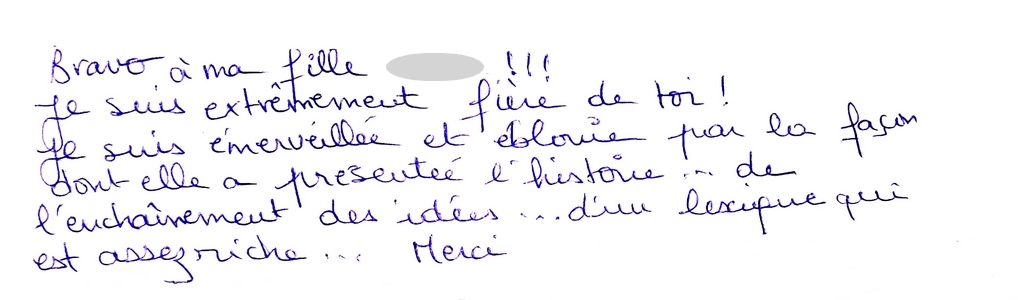 Bravo à ma fille !!!
Je suis extrêmement fière de toi !
Je suis émerveillée et éblouie par la façon
dont elle a présenteé l'histoire ... de
l'enchaînement des idées ... d'un lexique qui
est assez riche ... Merci